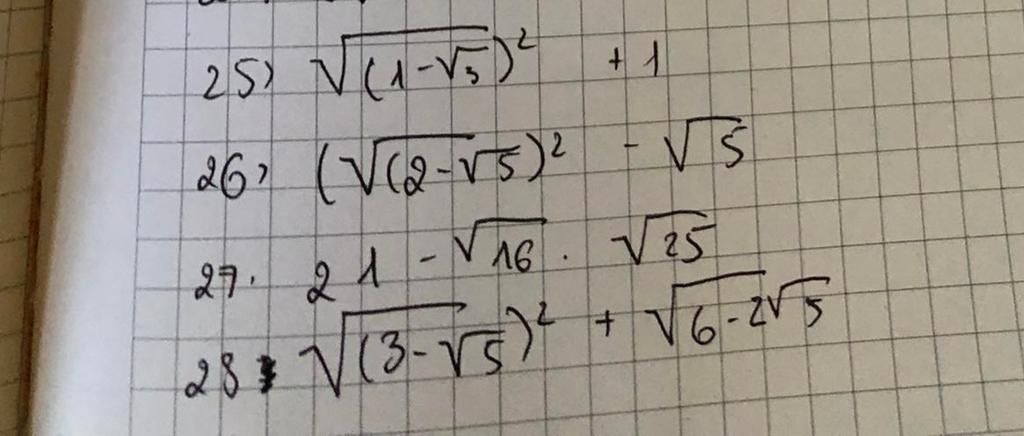 25) √(1-√5)² + 1
26) (√(2-√5)² - √5
27. 21 - √16 . √25
28. √(3-√5)² + √6-2√5